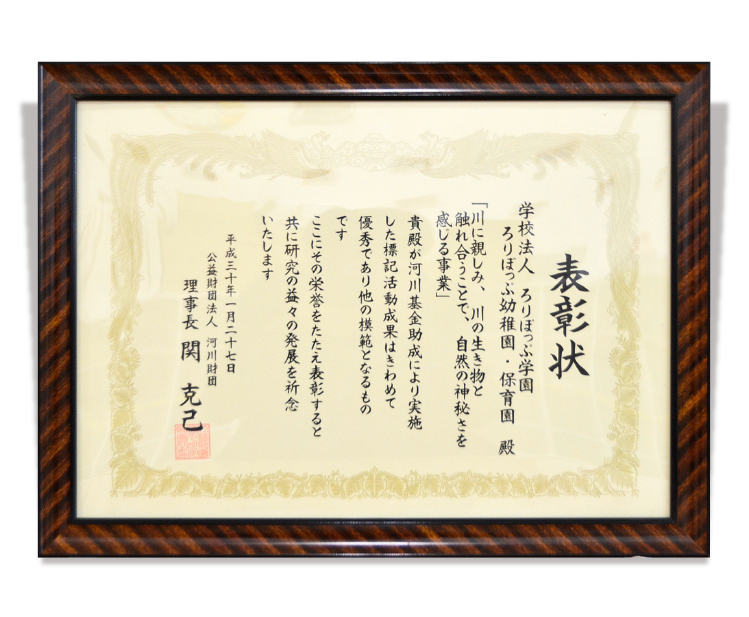 表彰状
学校法人 ろりぽっぷ学園
ろりぽっぷ幼稚園・保育園 殿
「川に親しみ、川の生き物と
触れ合うことで、自然の神秘さを
感じる事業」
貴殿が河川基金助成により実施
した標記活動成果はきわめて
優秀であり他の模範となるもの
です
ここにその栄誉をたたえ表彰すると
共に研究の益々の発展を祈念
いたします
平成三十年一月二十七日
公益財団法人 河川財団
理事長 関 克己